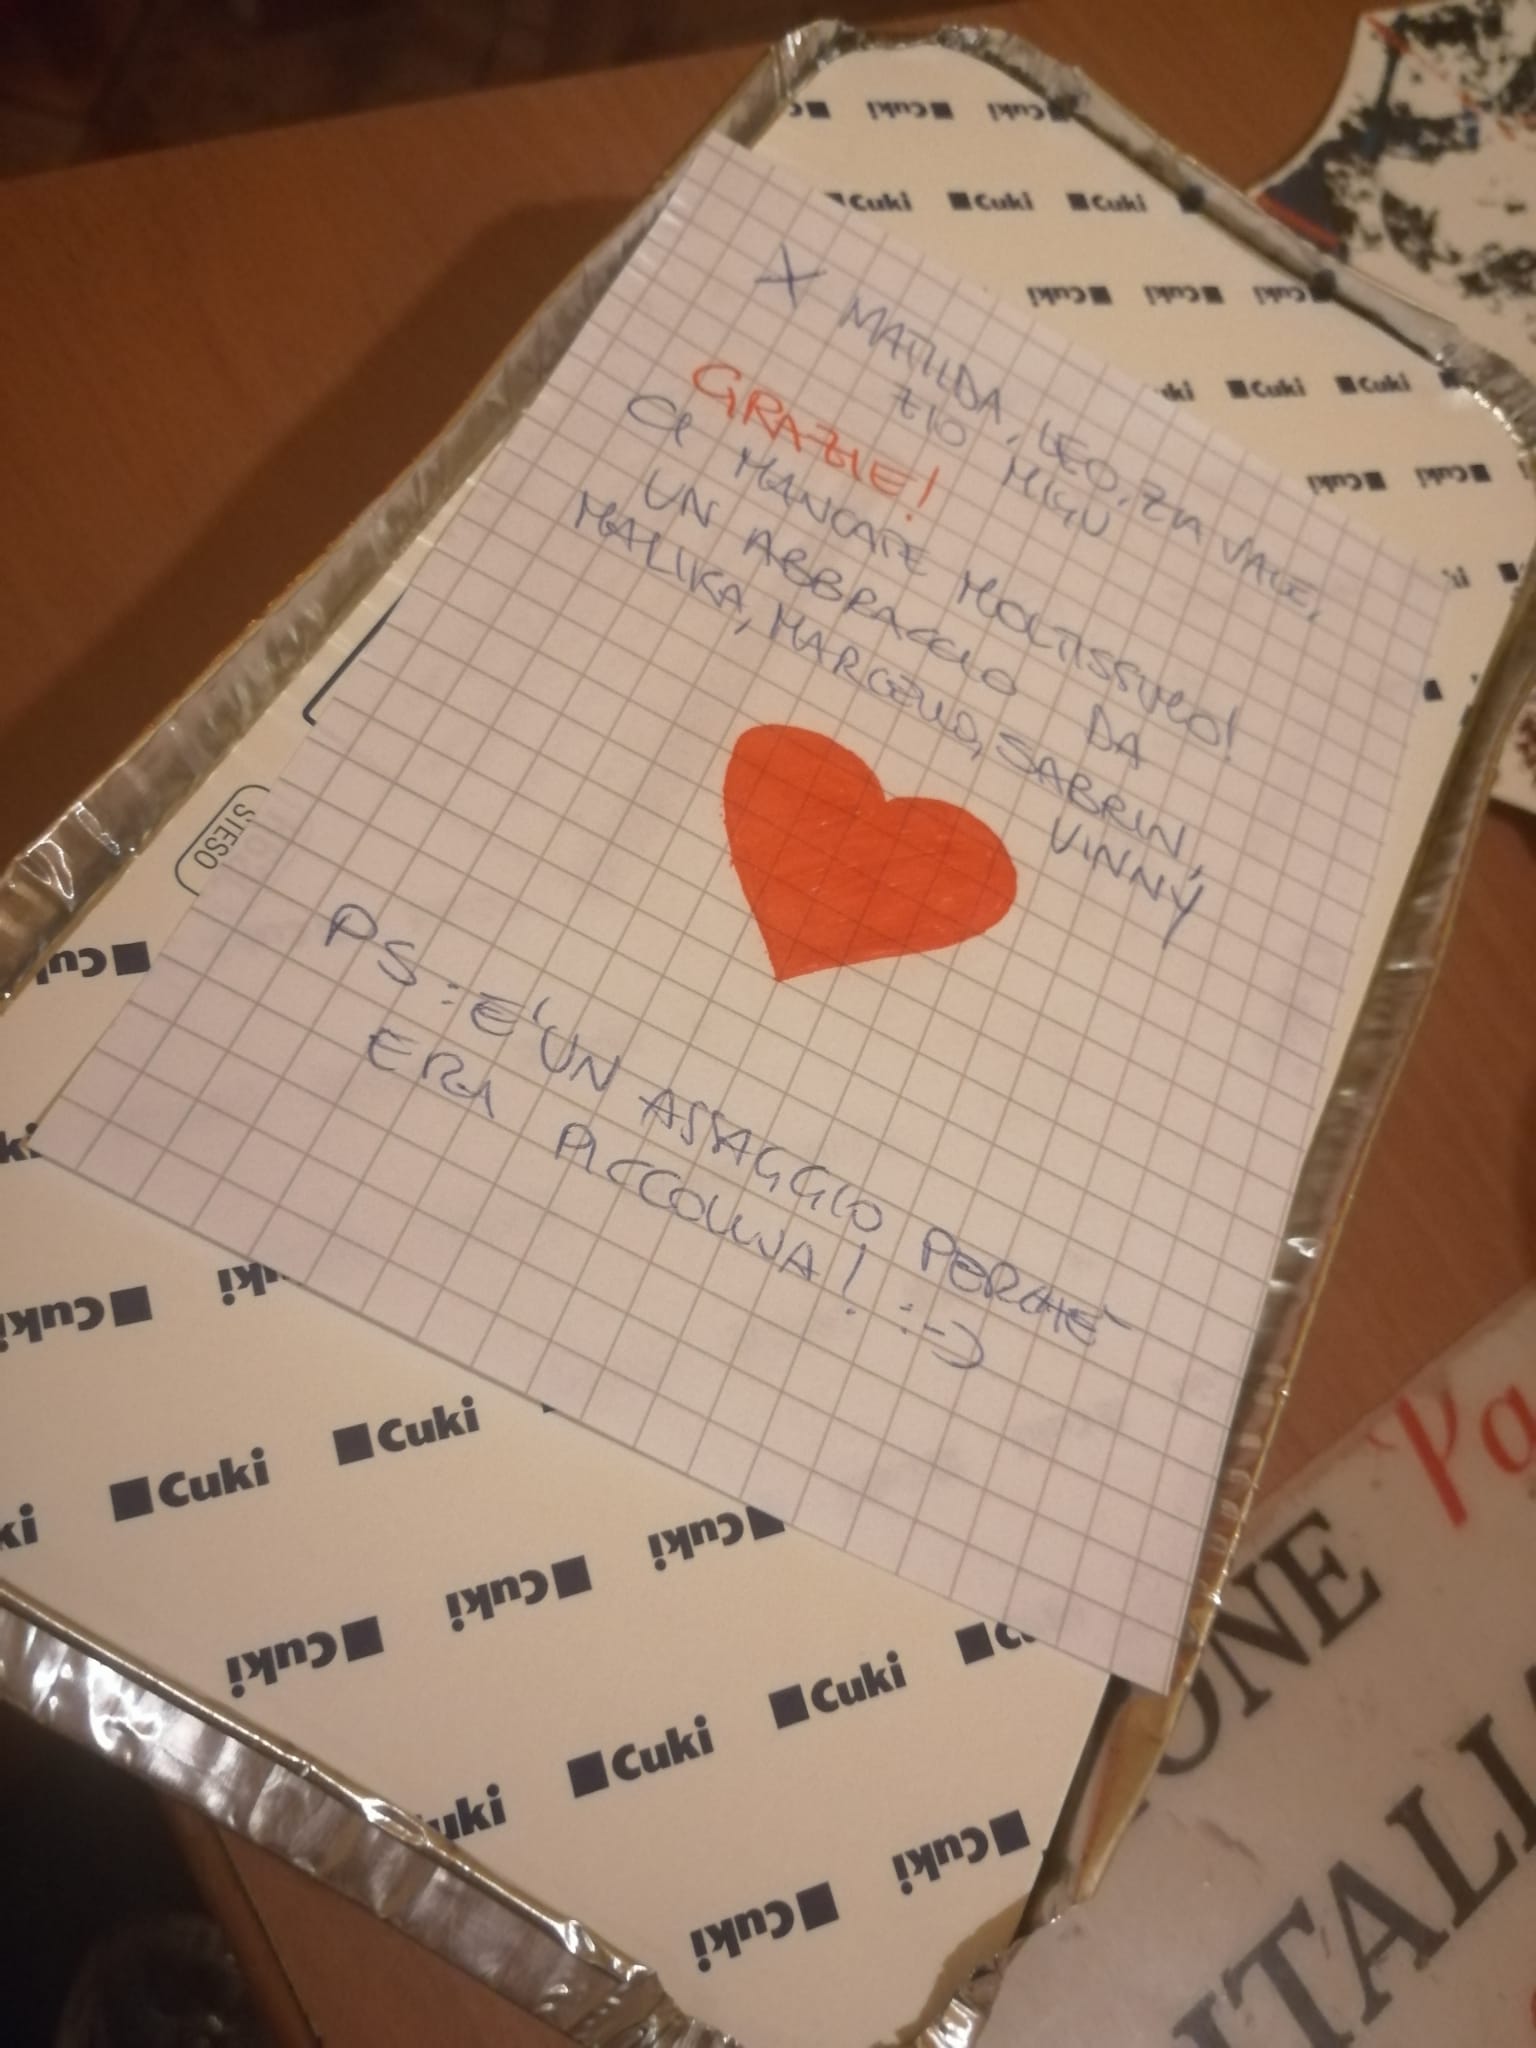 X MATILDA, LEO, ZIA VALE,
ZIO MIGU
GRAZIE!
CI MANCATE MOLTISSIMO!
UN ABBRACCIO DA
MALIKA, MARCELLO, SABRIN,
VINNY
PS: E' UN ASSAGGIO PERCHÈ
ERA PICCOLINA! :-)
STESO
Cuki Cuki
Cuki Cuki Cuki
Cuki Cuki Cuki
Cuki Cuki
Cuki Cuki
Cuki
Cuki Cuki
Cuki Cuki
Cuki Cuki Cuki
Cuki Cuki
Cuki Cuki
Pa
ONE
ITALIA